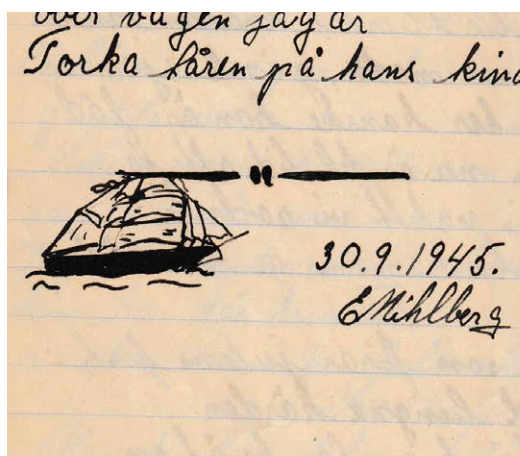 över vågen jagar
Torka tåren på hans kind
30.9.1945.
E Mihlberg